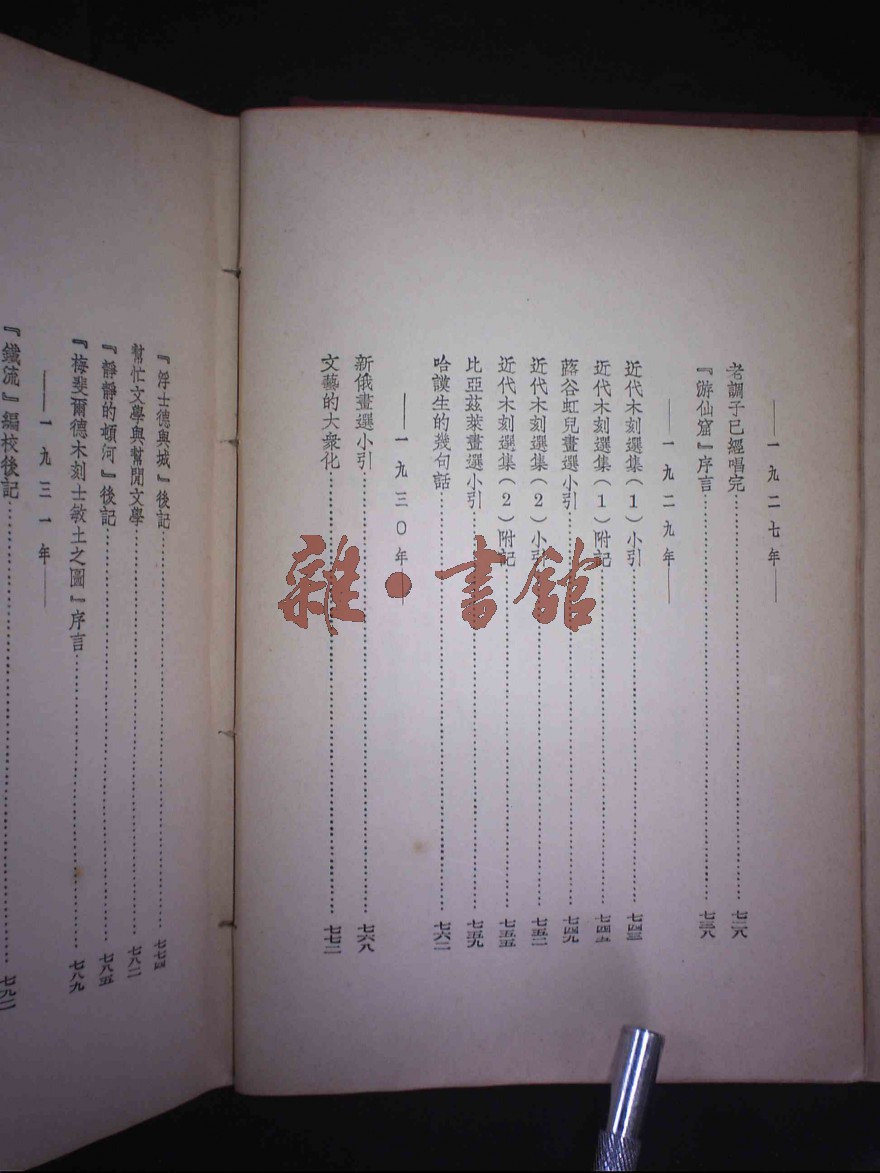 ——一九二七年——
老調子已經唱完……七二八
『游仙窟』序言……七三八
——一九二九年——
近代木刻選集(1)小引……七四三
近代木刻選集(1)附記……七四五
蕗谷虹兒畫選小引……七四九
近代木刻選集(2)小引……七五二
近代木刻選集(2)附記……七五五
比亞茲萊畫選小引……七五九
哈謨生的幾句話……七六二
——一九三〇年——
新俄畫選小引……七六八
文藝的大衆化……七七二
『浮士德與城』後記……七七四
幫忙文學與幫閒文學……七八二
『靜靜的頓河』後記……七八五
『梅斐爾德木刻士敏土之圖』序言……七八九
——一九三一年——
『鐵流』編校後記……七九二
雜·書館